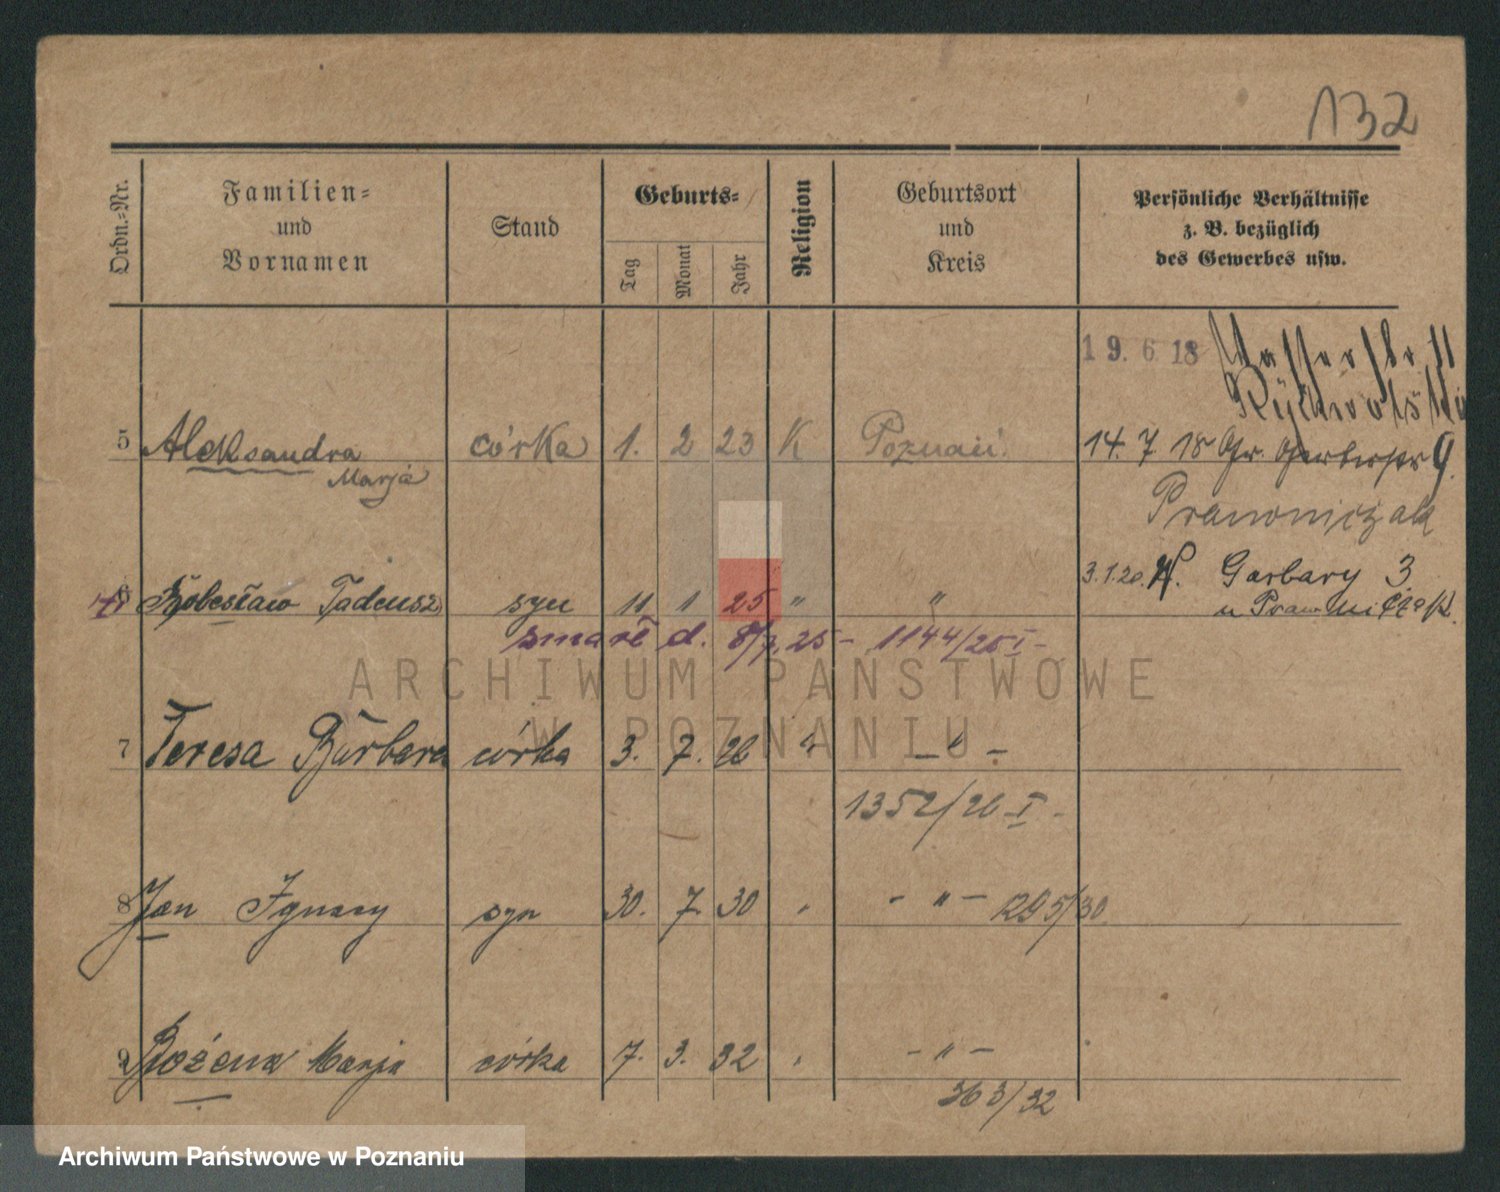 132
Ordn.-Nr.
Familien-
und
Vornamen
Stand
Geburts-
Tag
Monat
Jahr
Religion
Geburtsort
und
Kreis
Persönliche Verhältnisse
z. B. bezüglich
des Gewerbes usw.
19. 6. 18 Wasserstr. 11
5 Aleksandra córka 1. 2 23 K Poznań 14. 7 18 Gr. Gerberstr 9.
Marja
3.1.20. W. Garbary 3
6 Bolesław Tadeusz syn 11 1 25 " "
zmarł d. 8/7. 25 - 1144/25 I -
ARCHIWUM PAŃSTWOWE
W POZNANIU
7 Teresa Barbara córka 3. 7. 26 " - " -
1352/26 I -
8 Jan Ignacy syn 30. 7. 30 " - " - 1295/30
9 Bożena Marja córka 7. 3. 32 " - " -
363/32
Archiwum Państwowe w Poznaniu